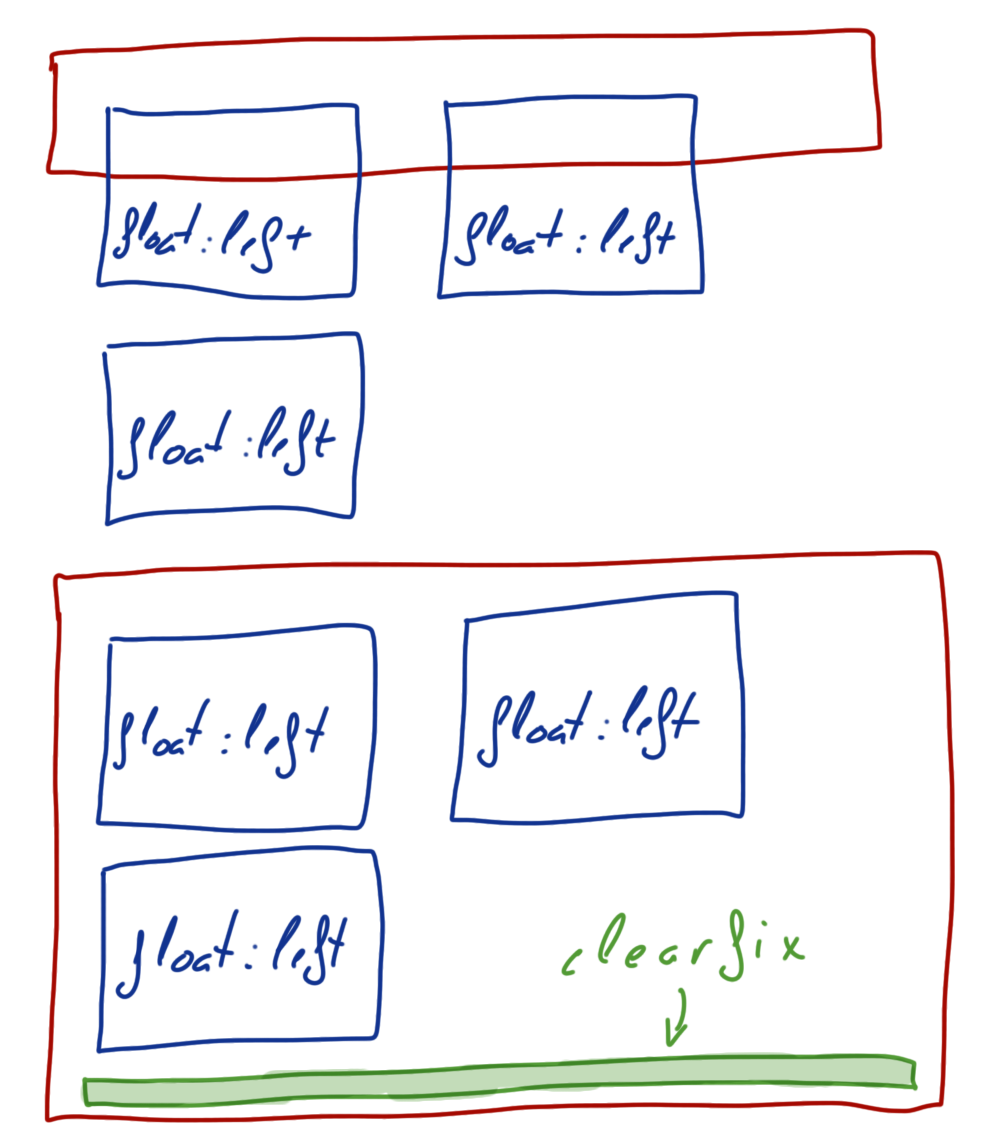 float:left
float:left
float:left
float:left
float:left
float:left
clearfix